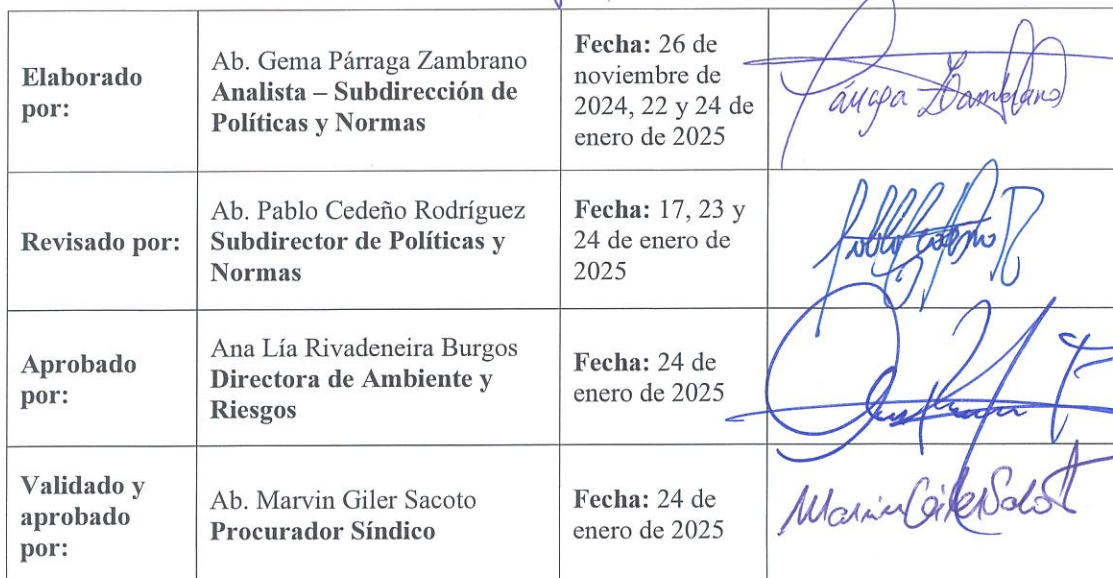 Elaborado
por:
Ab. Gema Párraga Zambrano
Analista – Subdirección de
Políticas y Normas
Fecha: 26 de
noviembre de
2024, 22 y 24 de
enero de 2025
Párraga Zambrano
Revisado por:
Ab. Pablo Cedeño Rodríguez
Subdirector de Políticas y
Normas
Fecha: 17, 23 y
24 de enero de
2025
Aprobado
por:
Ana Lía Rivadeneira Burgos
Directora de Ambiente y
Riesgos
Fecha: 24 de
enero de 2025
Validado y
aprobado
por:
Ab. Marvin Giler Sacoto
Procurador Síndico
Fecha: 24 de
enero de 2025